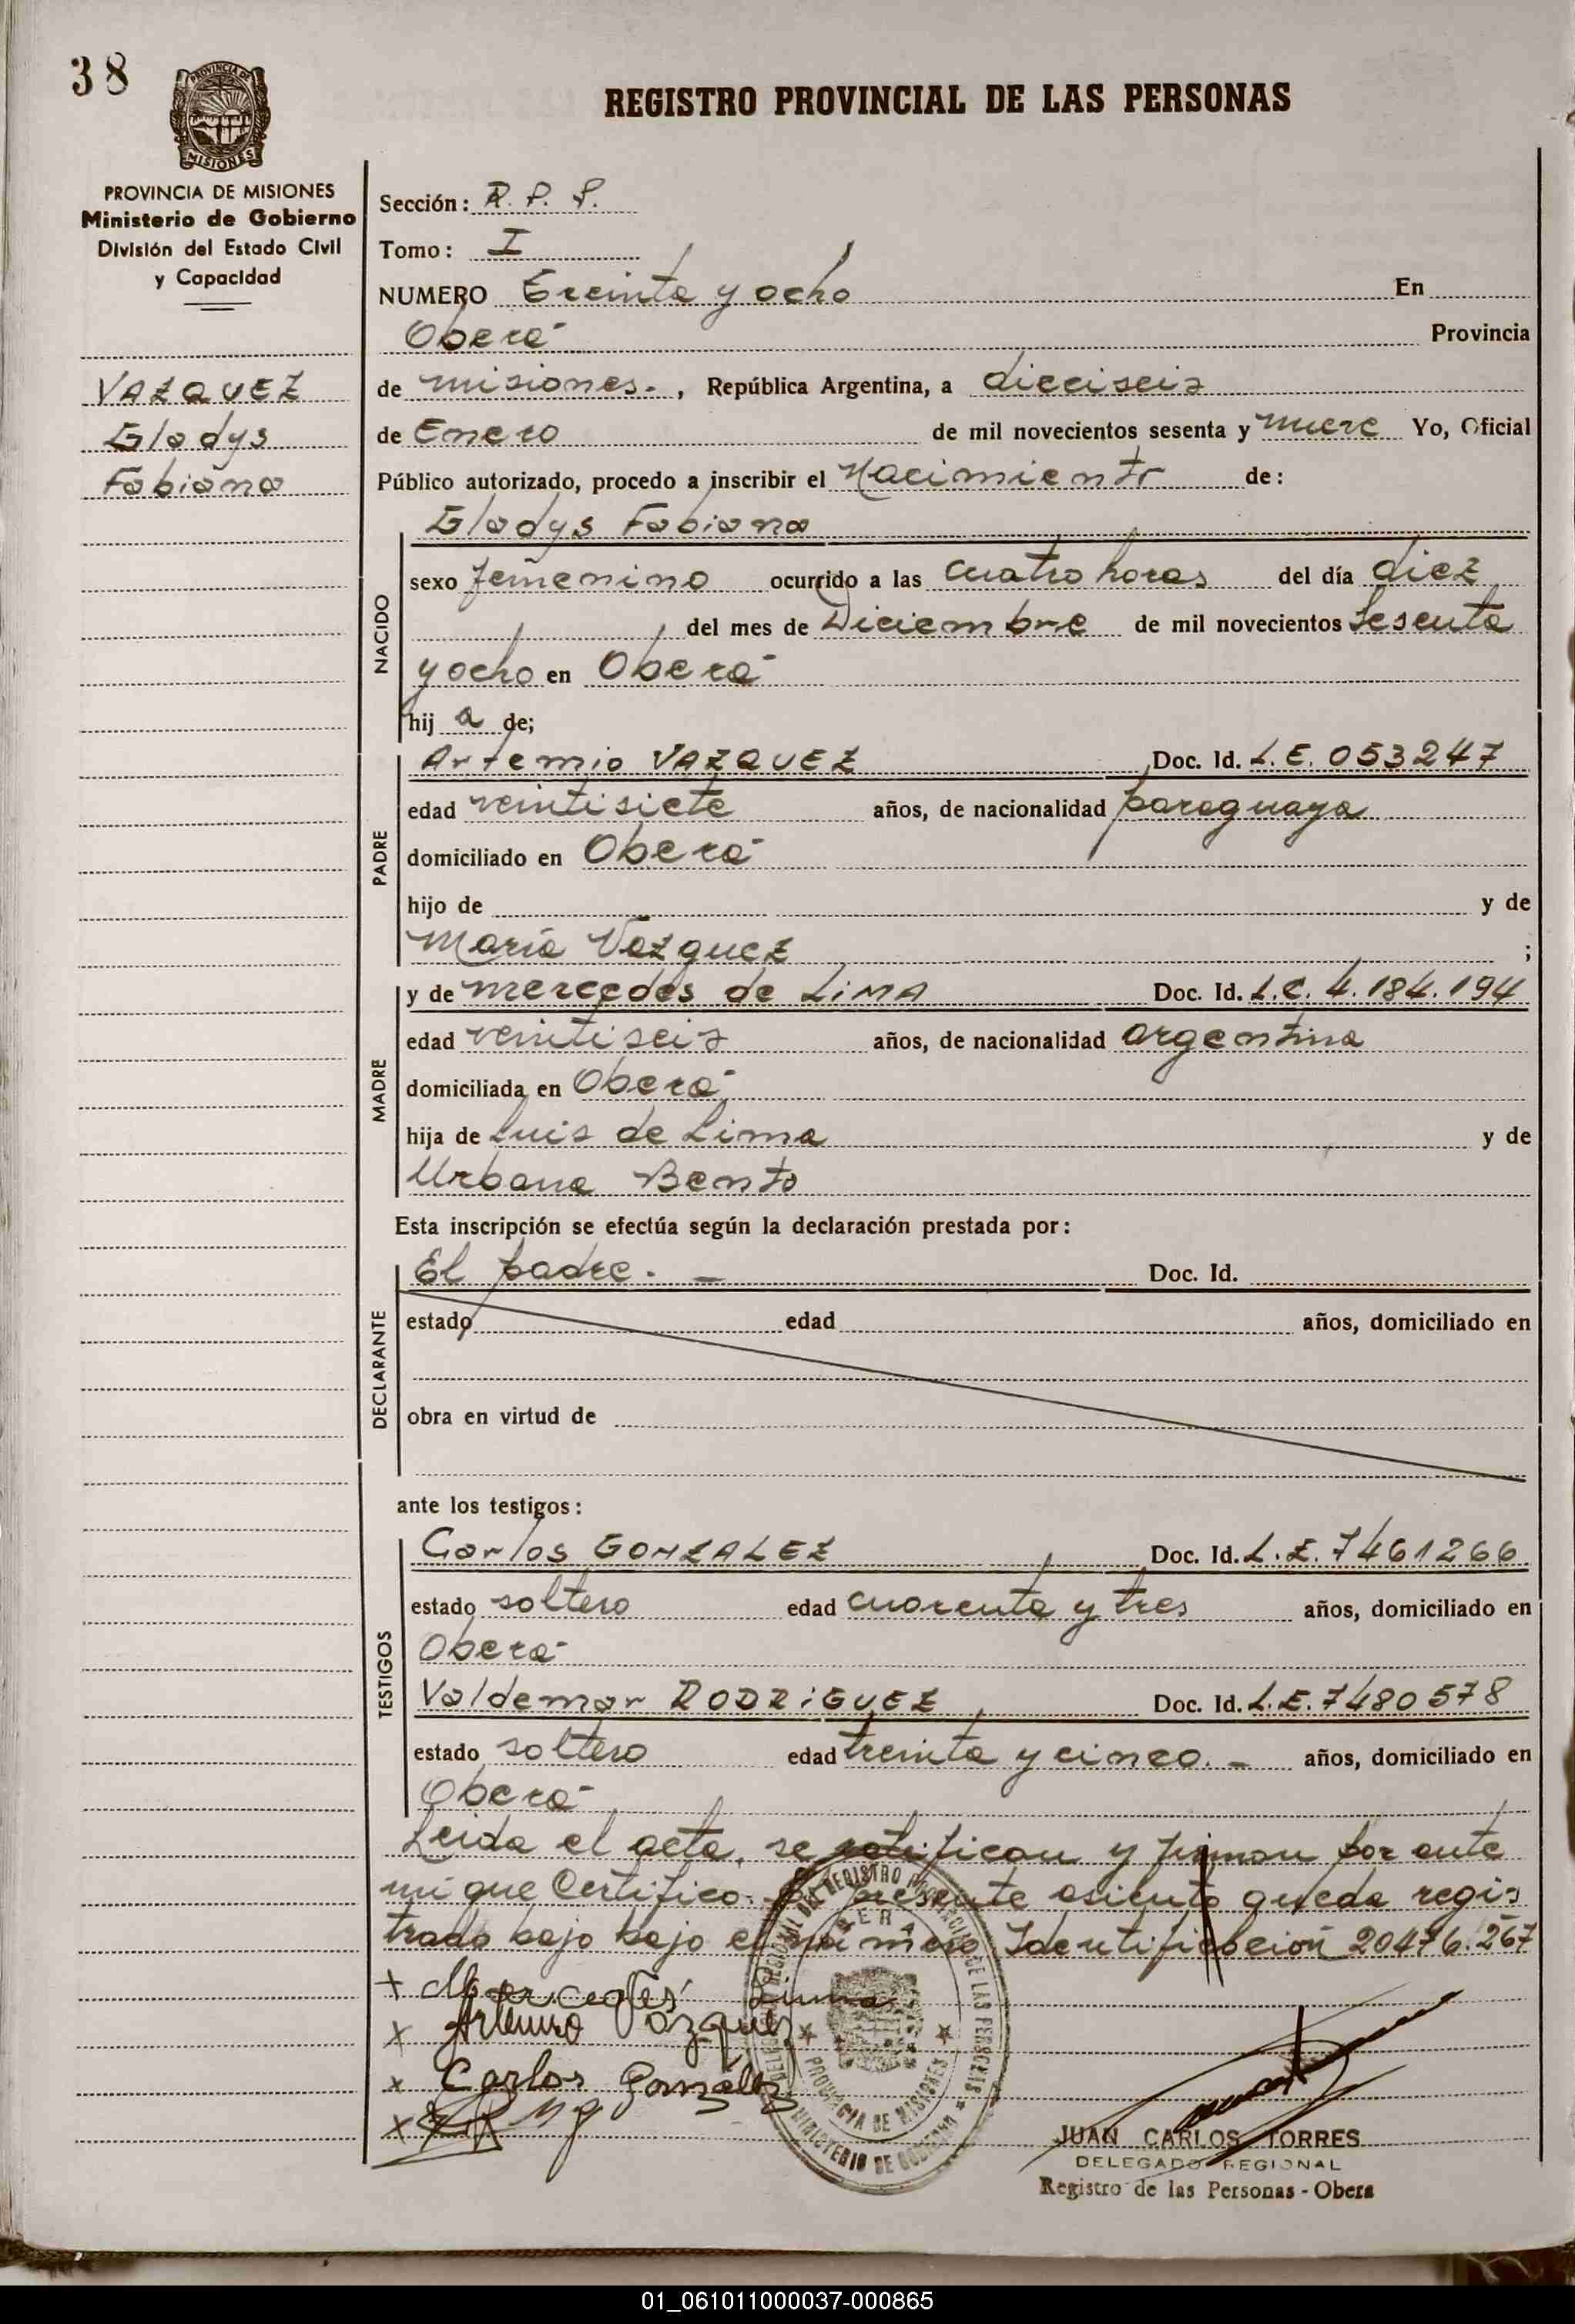 38
PROVINCIA DE
MISIONES
REGISTRO PROVINCIAL DE LAS PERSONAS
PROVINCIA DE MISIONES
Ministerio de Gobierno
División del Estado Civil
y Capacidad
VAZQUEZ
Gladys
Fabiana
Sección: R. P. P.
Tomo: I
NUMERO Treinta y ocho En
Oberá Provincia
de misiones. , República Argentina, a dieciseis
de Enero de mil novecientos sesenta y nueve Yo, Oficial
Público autorizado, procedo a inscribir el Nacimiento de:
Gladys Fabiana
NACIDO
sexo femenino ocurrido a las cuatro horas del día diez
del mes de Diciembre de mil novecientos Sesenta
y ocho en Oberá
hij a de;
PADRE
Artemio VAZQUEZ Doc. Id. L.E. 053247
edad veintisiete años, de nacionalidad paraguaya
domiciliado en Oberá
hijo de y de
María Vazquez ;
MADRE
y de mercedes de LIMA Doc. Id. L.C. 4.184.194
edad veintiseis años, de nacionalidad argentina
domiciliada en Oberá
hija de Luis de Lima y de
Urbana Bento
Esta inscripción se efectúa según la declaración prestada por:
DECLARANTE
El padre. — Doc. Id.
estado edad años, domiciliado en
obra en virtud de
ante los testigos:
TESTIGOS
Carlos GONZALEZ Doc. Id. L.E. 7461266
estado soltero edad cuarenta y tres años, domiciliado en
Oberá
Valdemar RODRIGUEZ Doc. Id. L.E. 7480578
estado soltero edad treinta y cinco. — años, domiciliado en
Oberá
Leida el acta, se ratifican y firman por ante
mi que Certifico. presente asiento queda regis
trado bajo bajo el número Identificación 20476.267
x Mercedes Lima
x Artemio Vazquez
x Carlos González
x
PROVINCIA DE MISIONES
MINISTERIO DE GOBIERNO
JUAN CARLOS TORRES
DELEGADO REGIONAL
Registro de las Personas - Obera
01_061011000037-000865